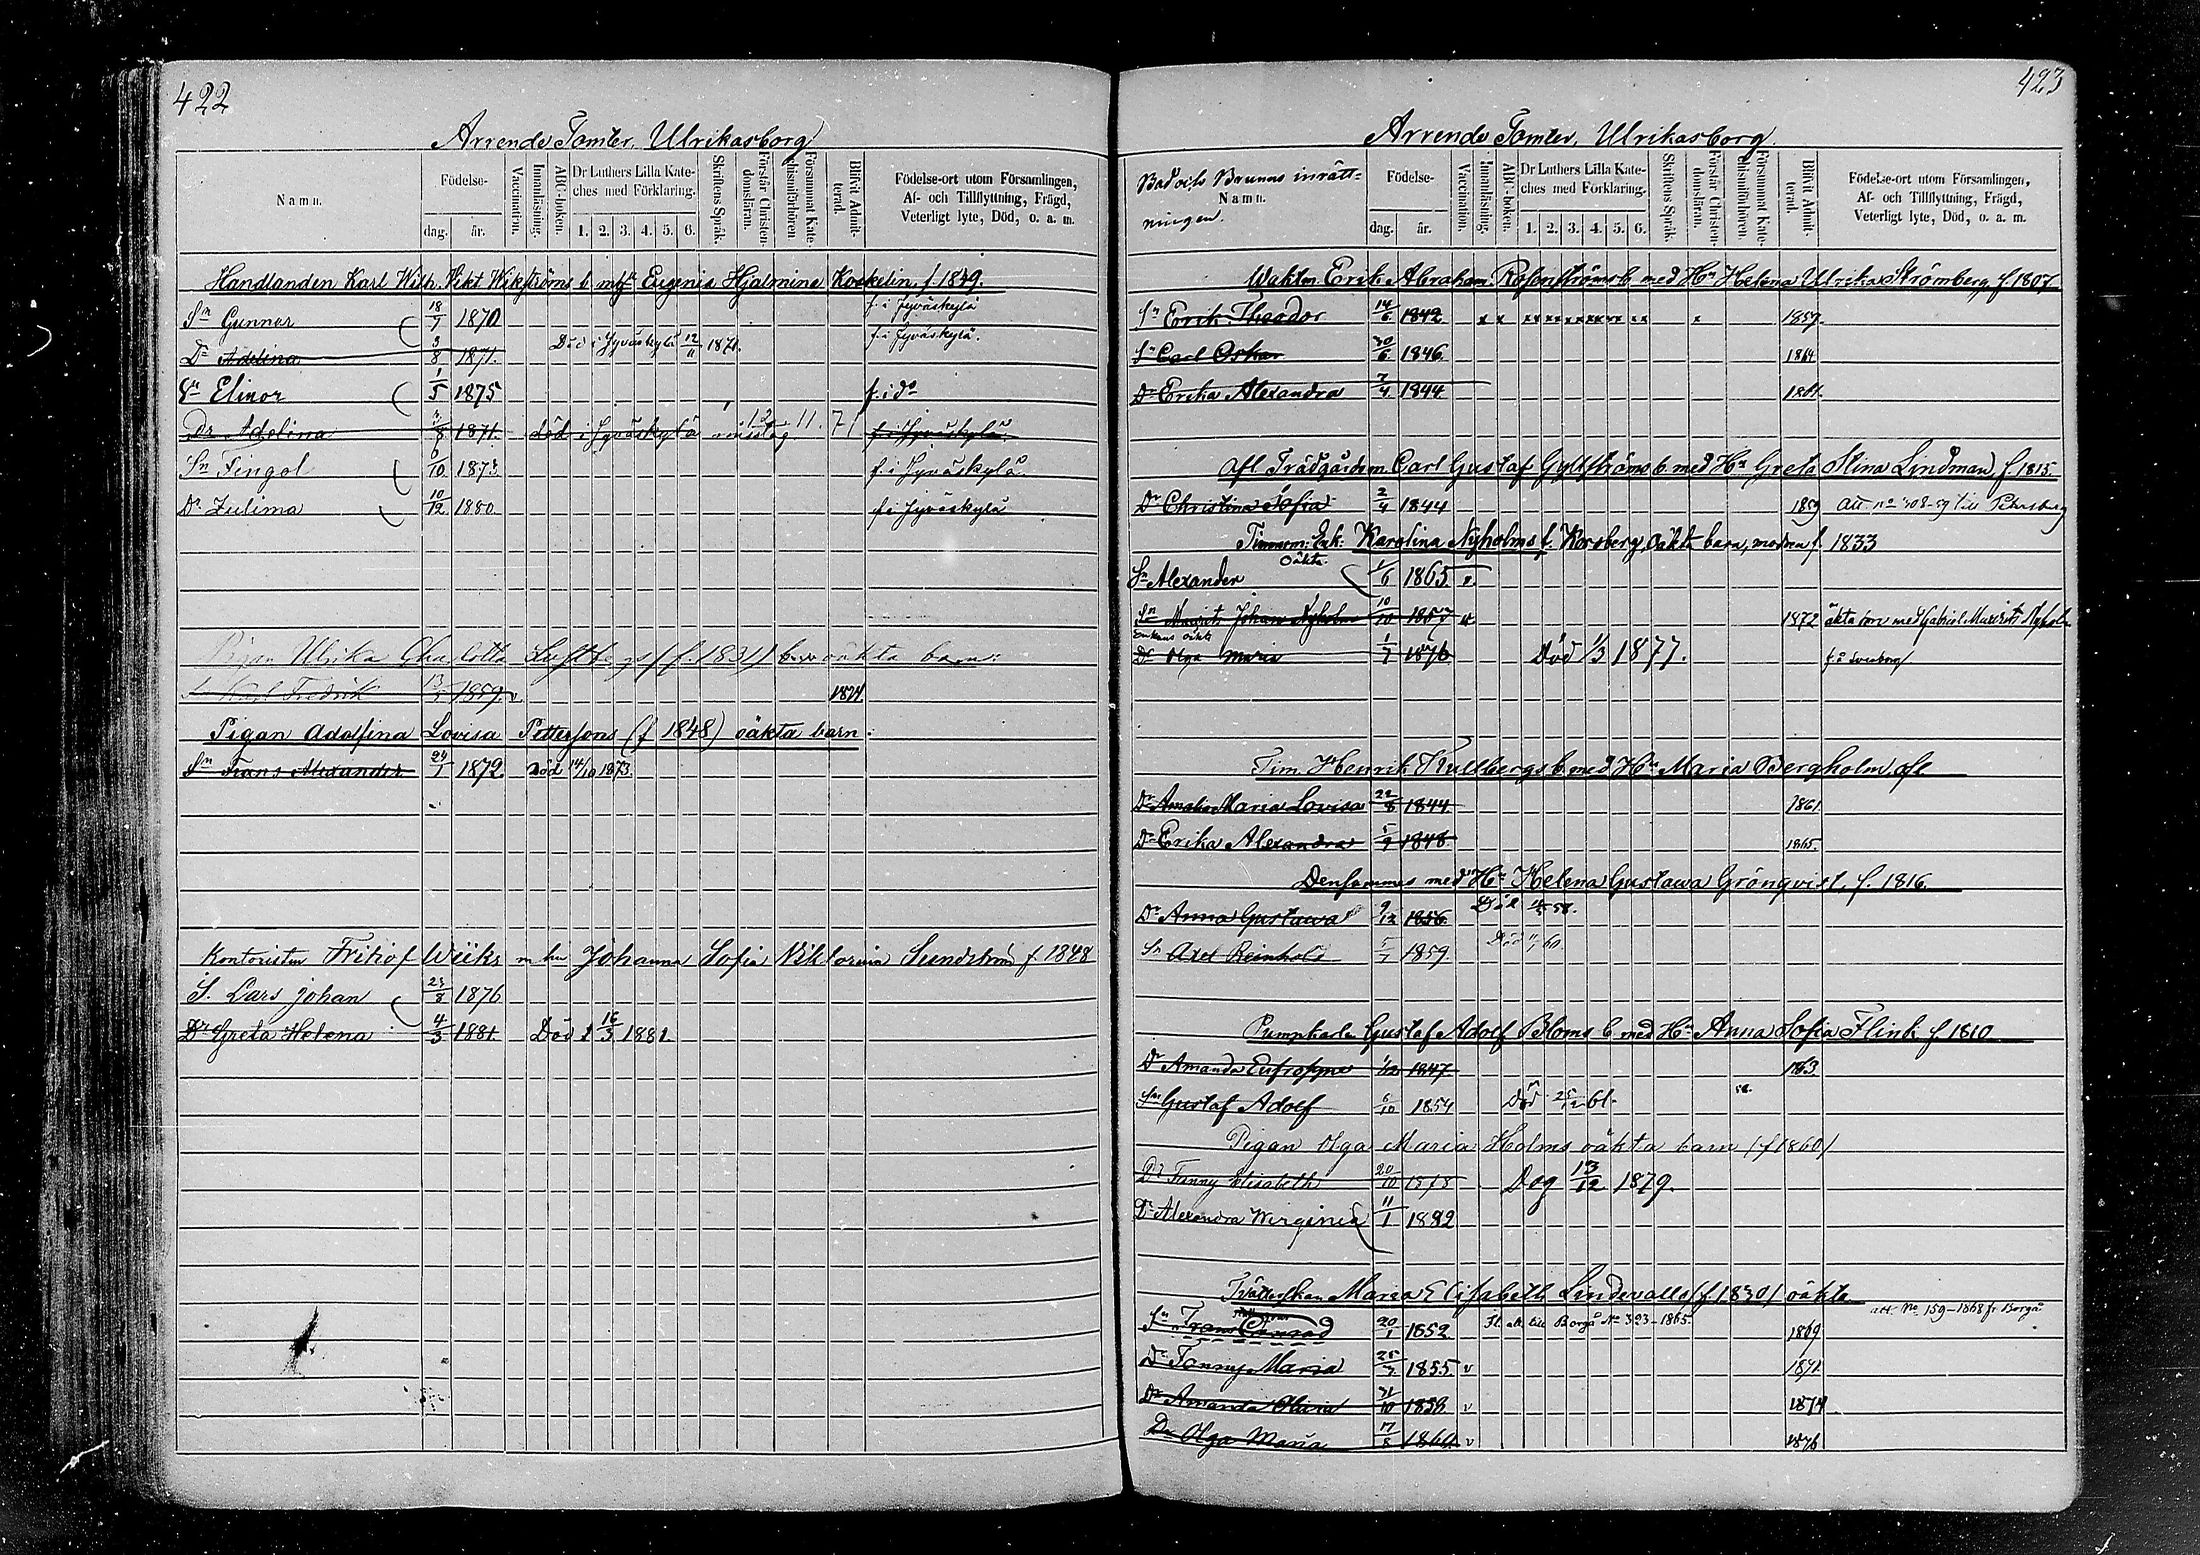 422
Arrende Tomter, Ulrikasborg
Namn.
Födelse-
dag. år.
Vaccination.
Innanläsning.
ABC-boken.
Dr Luthers Lilla Kate-
ches med Förklaring.
1. 2. 3. 4. 5. 6.
Skriftens Språk.
Förstår Christen-
domsläran.
Försummat Kate-
chismiförhören
Blifvit Admit-
terad.
Födelse-ort utom Församlingen,
Af- och Tillflyttning, Frägd,
Veterligt lyte, Död, o. a. m.
Handlanden Karl Wilh. Vikt Wikströms b. m h Eugenia Hjalmina Koskelin, f. 1849.
Sn Gunnar 18/7 1870 f. i Jyväskylä
Dr Adelina 3/8 1871. Död i Jyväskylä 12/11 1871. f. i Jyväskylä.
Sn Elinor 1/5 1875 f. i do
Dr Adelina 3/8 1871. död i Jyväskylä 12 11. 71 f. i Jyväskylä.
Sn Fingol 6/10 1873. f. i Jyväskylä
Dr Zulima 10/12 1880 f. i Jyväskylä
Pigan Ulrika Charlotta (f. 1831) oäkta barn:
Sn Karl Fredrik 1859. v 1874
Pigan Adolfina Lovisa Pettersons (f 1848) oäkta barn.
Sn Frans Alexander 29/1 1872. Död 14/10 1873.
Kontoristen Fritiof Wiiks m hu Johanna Sofia Viktoria Sundström f. 1848
S. Lars Johan 23/8 1876
Dr Greta Helena 4/3 1881. Död d 16/3 1881.
423
Arrende Tomter, Ulrikasborg.
Bad och Brunns inrätt-
Namn.
ningen.
Födelse-
dag. år.
Vaccination.
Innanläsning.
ABC-boken.
Dr Luthers Lilla Kate-
ches med Förklaring.
1. 2. 3. 4. 5. 6.
Skriftens Språk.
Förstår Christen-
domsläran.
Försummat Kate-
chismiförhören.
Blifvit Admit-
terad.
Födelse-ort utom Församlingen,
Af- och Tillflyttning, Frägd,
Veterligt lyte, Död, o. a. m.
Waktm Erik Abraham Rosenströms b med Hu Helena Ulrika Strömberg f. 1807
Sn Erik Theodor 14/6 1842 x x xxxxxxxxxx xx x 1857.
Sn Carl Oskar 30/6 1846 1864
Dr Erika Alexandra 7/4 1844 1861.
Afl Trädgårdsm. Carl Gustaf Gyllströms b. med Hu Greta Stina Lindman, f 1815
Dr Christina Sofia 2/4 1844 1859 att. no 308-59 till Petersborg
Timmerm. Enk. Karolina Nyholms f. Korsberg, oäkta barn, modren f. 1833
oäkta
Sn Alexander 1/6 1865 v.
Sn Maurits Johan Nyholm 10/10 1857 v 1872 äkta son med Gabriel Maurits Nyholm
Enkans oäkta
Dr Olga Maria 1/7 1876 Död 1/3 1877. f. å Sveaborg
Tim. Henrik Kullbergs b med Hu Maria Bergholm afl
Dr Amalia Maria Lovisa 22/8 1844 1861
Dr Erika Alexandra 5/9 1848 1865.
Densammes med Hu Helena Gustawa Grönqvist, f. 1816.
Dr Anna Gustawa 9/12 1856. Död 58.
Sn Axel Reinhold 5/7 1859 Död 60
Pumpkarlen Gustaf Adolf Bloms b med Hu Anna Sofia Flink f. 1810
Dr Amanda Eufrosyne 1/12 1847. 1863
Sn Gustaf Adolf 6/10 1854 Död 25/12 61.
Pigan Olga Maria Holms oäkta barn (f 1860)
Dr Fanny Elisabeth 20/10 1878 Dog 13/12 1879.
Dr Alexandra Wirginia 11/1 1882
Tvätterskan Maria Elisabeth Lindevalls (f 1830) oäkta
att. No 159-1868 fr. Borgå
Sn Frans Conrad 20/1 1852. Fl. att. till Borgå No 323-1865 1869
Dr Fanny Maria 25/7 1855. v 1871
Dr Amanda Maria 31/10 1858 v 1874
Dr Olga Maria 17/8 1860. v 1876